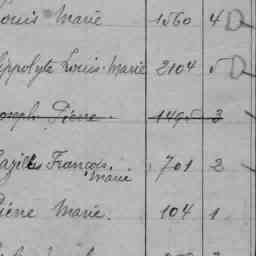 Louis Marie 1560 4
Hippolyte Louis Marie 2104 5
Joseph Pierre 1495 3
François Marie 701 2
Pierre Marie. 104 1